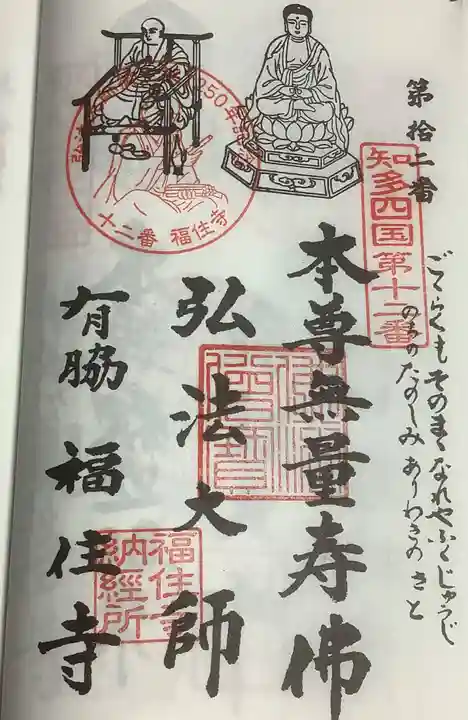 第拾二番
知多四国第十二番
ごくらくも そのまま なれや ふくじゅうじ
のちのたのしみ ありわきの さと
本尊無量寿佛
弘法大師
有脇 福住寺
50年
十二番 福住寺
福住寺
納経所